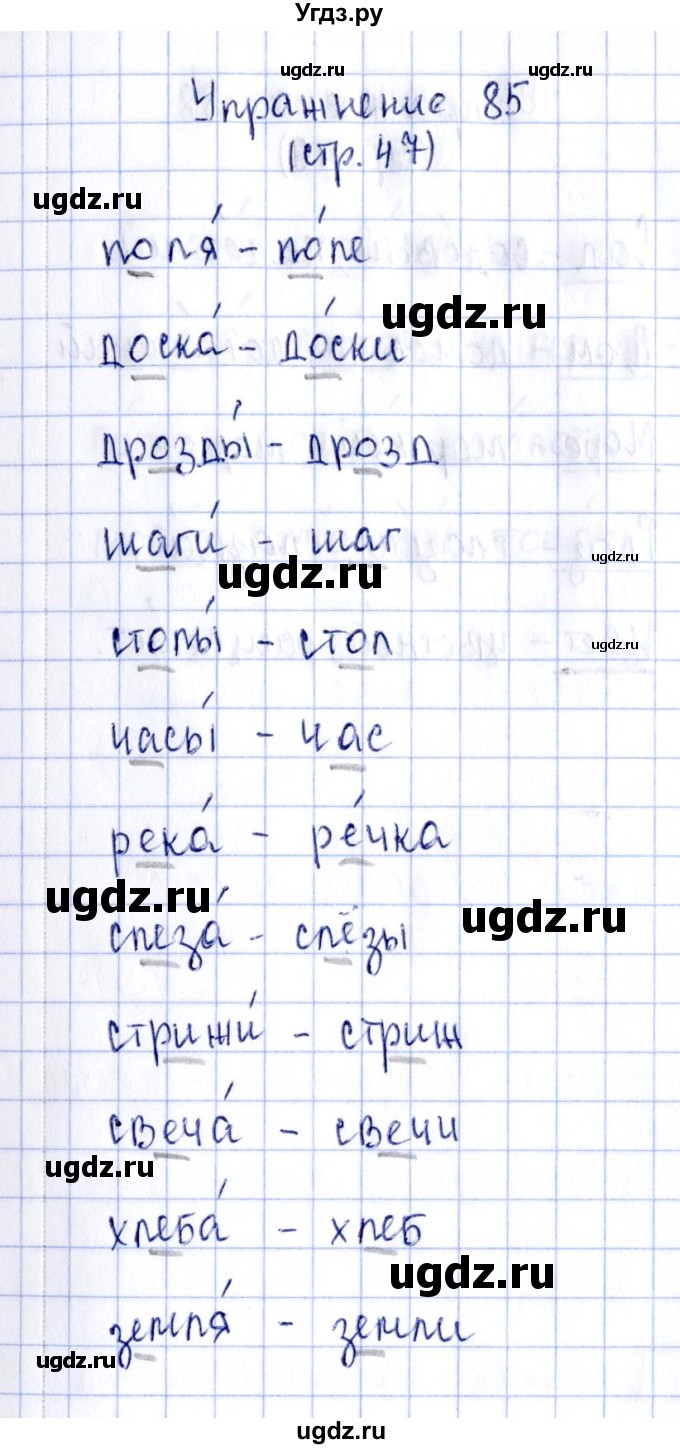 Угдз.ру
ugdz.ru ugdz.ru
Упражнение 85
(стр. 47)
ugdz.ru
поля́ - по́ле
ugdz.ru
доска́ - до́ски
дрозды́ - дрозд
шаги́ - шаг
ugdz.ru
ugdz.ru
столы́ - стол
ugdz.ru
часы́ - час
река́ - ре́чка
ugdz.ru
ugdz.ru
слеза́ - слёзы
стрижи́ - стриж
свеча́ - свечи
ugdz.ru
хлеба́ - хлеб
ugdz.ru
земля́ - земли
ugdz.ru
ugdz.ru ugdz.ru
ugdz.ru